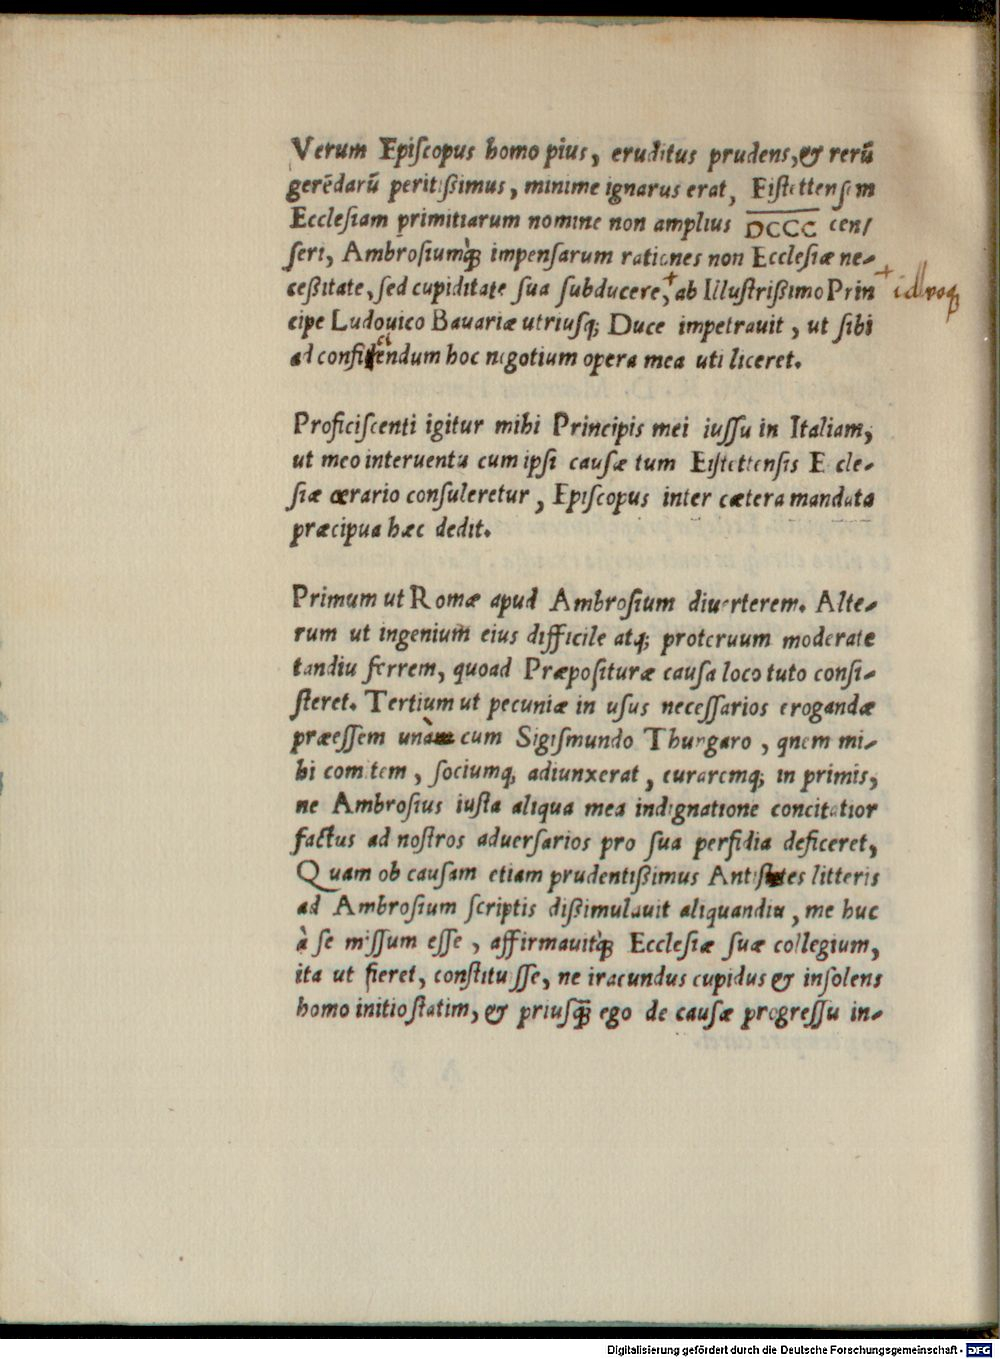 Verum Epiſcopus homo pius, eruditus prudens,& rerū
gerēdarū peritißimus, minime ignarus erat, Eiſtettenſem
Eccleſiam primitiarum nomine non amplius DCCC cen/
ſeri, Ambroſiumq̀; impenſarum rationes non Eccleſiæ ne-
ceßitate, ſed cupiditate ſua ſubducere,+ ab Illuſtrißimo Prin + ideoq;
cipe Ludouico Bauariæ utriuſq; Duce impetrauit, ut ſibi
ad conficiendum hoc negotium opera mea uti liceret.
Proficiſcenti igitur mihi Principis mei iuſſu in Italiam,
ut meo interuentu cum ipſi cauſæ tum Eiſtettenſis E cle-
ſiæ ærario conſuleretur, Epiſcopus inter cætera mandata
præcipua hæc dedit.
Primum ut Romæ apud Ambroſium diuerterem. Alte-
rum ut ingenium eius difficile atq; proteruum moderate
tandiu ferrem, quoad Præpoſituræ cauſa loco tuto conſi-
ſteret. Tertium ut pecuniæ in uſus neceſſarios erogandæ
præeſſem unà cum Sigiſmundo Thurgaro, qnem mi-
hi comitem, ſociumq; adiunxerat, curaremq; in primis,
ne Ambroſius iuſta aliqua mea indignatione concitatior
factus ad noſtros aduerſarios pro ſua perfidia deficeret,
Quam ob cauſam etiam prudentißimus Antiſtes litteris
ad Ambroſium ſcriptis dißimulauit aliquandiu, me huc
à ſe miſſum eſſe, affirmauitq̀; Eccleſiæ ſuæ collegium,
ita ut fieret, conſtituiſſe, ne iracundus cupidus & inſolens
homo initio ſtatim, & priuſq̃; ego de cauſæ progreſſu in-
Digitalisierung gefördert durch die Deutsche Forschungsgemeinschaft - DFG